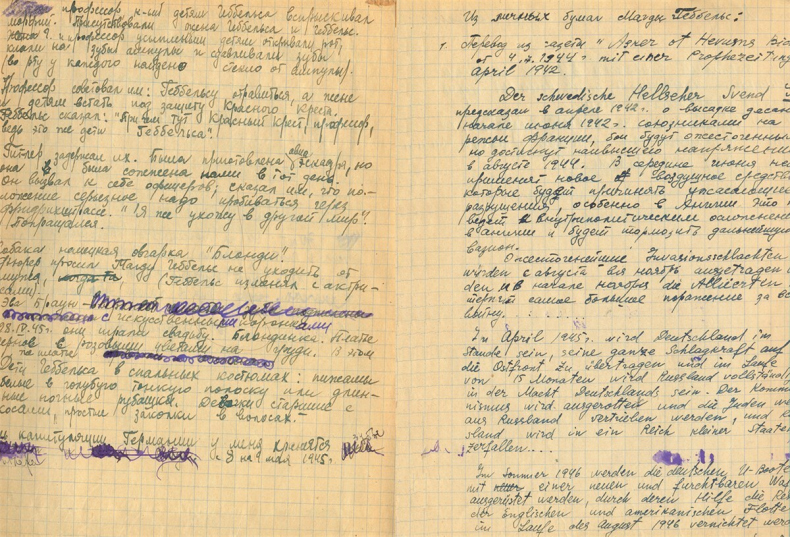 профессор н-ий детям Геббельса впрыскивал
морфий. Присутствовали жена Геббельса и Геббельс.
профессор усыпленным детям открывали рот,
клали на зубы ампулы и сдавливали зубы
(во рту у каждого найдено стекло от ампулы).
Профессор советовал им: Геббельсу отравиться, а жене
и детям встать под защиту Красного Креста.
Геббельс сказал: "Причем тут Красный Крест, профессор,
ведь это же дети Геббельса".
Гитлер задержал их. Была приготовлена авиаэскадра, но
она была сожжена нами в тот день.
Он вызвал к себе офицеров; сказал им, что по-
ложение серьезное надо пробиваться через
"Фридрихштрассе." "Я же ухожу в другой мир".
Попрощался.
Собака немецкая овчарка "Блонди".
Фюрер просил Магду Геббельс не уходить от
мужа, (Геббельс изменял с актри-
сами).
Ева Браун
с искусственными
28.IV.45г. они играли свадьбу. Блондинка. Платье
черное с розовыми цветами на груди. В этом
платье
Дети Геббельса в спальных костюмах: пижамы
белые в голубую тонкую полоску или длин-
ные ночные рубашки. Девочки старшие с
косами, простые заколки в волосах.
капитуляции Германии у меня хранятся
с 8 на 9 мая 1945г.
Из личных бумаг Магды Геббельс:
1. Перевод из газеты "
от 4. 1944г. mit einer Prophezeitung
April 1942.
Der schwedische Hellseher Svend
предсказал в апреле 1942г. о высадке десанта
начале июня 1942г. союзниками на
Франции, бои будут ожесточенные
но достигнут наивысшего напряжения
в августе 1944. В середине июня не
применят новое воздушное средство
которые будет причинять ужасающие
разрушения, особенно в Англии. Это
ведет к внутриполитическим осложнениям
в Англии и будет тормозить дальнейшую
вазион.
Ожесточеннейшие Invasionsschlachten
würden с августа bis ноябрь ausgetragen
den и в начале ноября die Alliierten
терпят самое большое поражение за всю
войну.......
In April 1945г. wird Deutschland im
stande sein, seine ganze Schlagkraft auf
die Ostfront zu übertragen und im Laufe
von 15 Monaten wird Russland vollständig
in der Macht Deutschlands sein. Der Kommu-
nismus wird ausgerotten und die Juden wer
aus Russland vertrieben werden, und
sland wird in ein Reich kleiner Staaten
zerfallen....
Im Sommer 1946 werden die deutschen U-Boote
mit einer neuen und furchtbaren Waf
ausgerüstet werden, durch deren Hilfe die Re
der Englischen und amerikanischen Flotte
im Laufe des August 1946 vernichtet wer